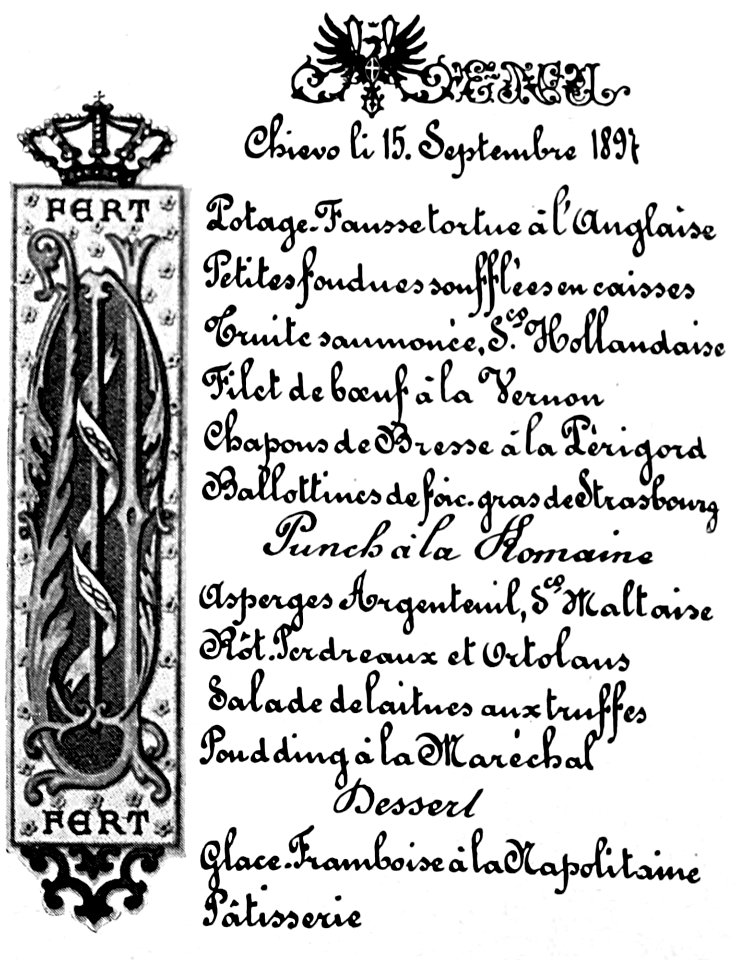 MENU
Chievo li 15. Septembre 1897
FERT
Potage-Fausse tortue à l'Anglaise
Petites fondues soufflées en caisses
Truite saumonée, S.ce Hollandaise
Filet de bœuf à la Vernon
Chapons de Bresse à la Périgord
Ballottines de foie-gras de Strasbourg
Punch à la Romaine
Asperges Argenteuil, S.ce Maltaise
Rôt-Perdreaux et Ortolans
Salade de laitues aux truffes
Poudding à la Maréchal
Dessert
Glace-Framboise à la Napolitaine
Pâtisserie
FERT